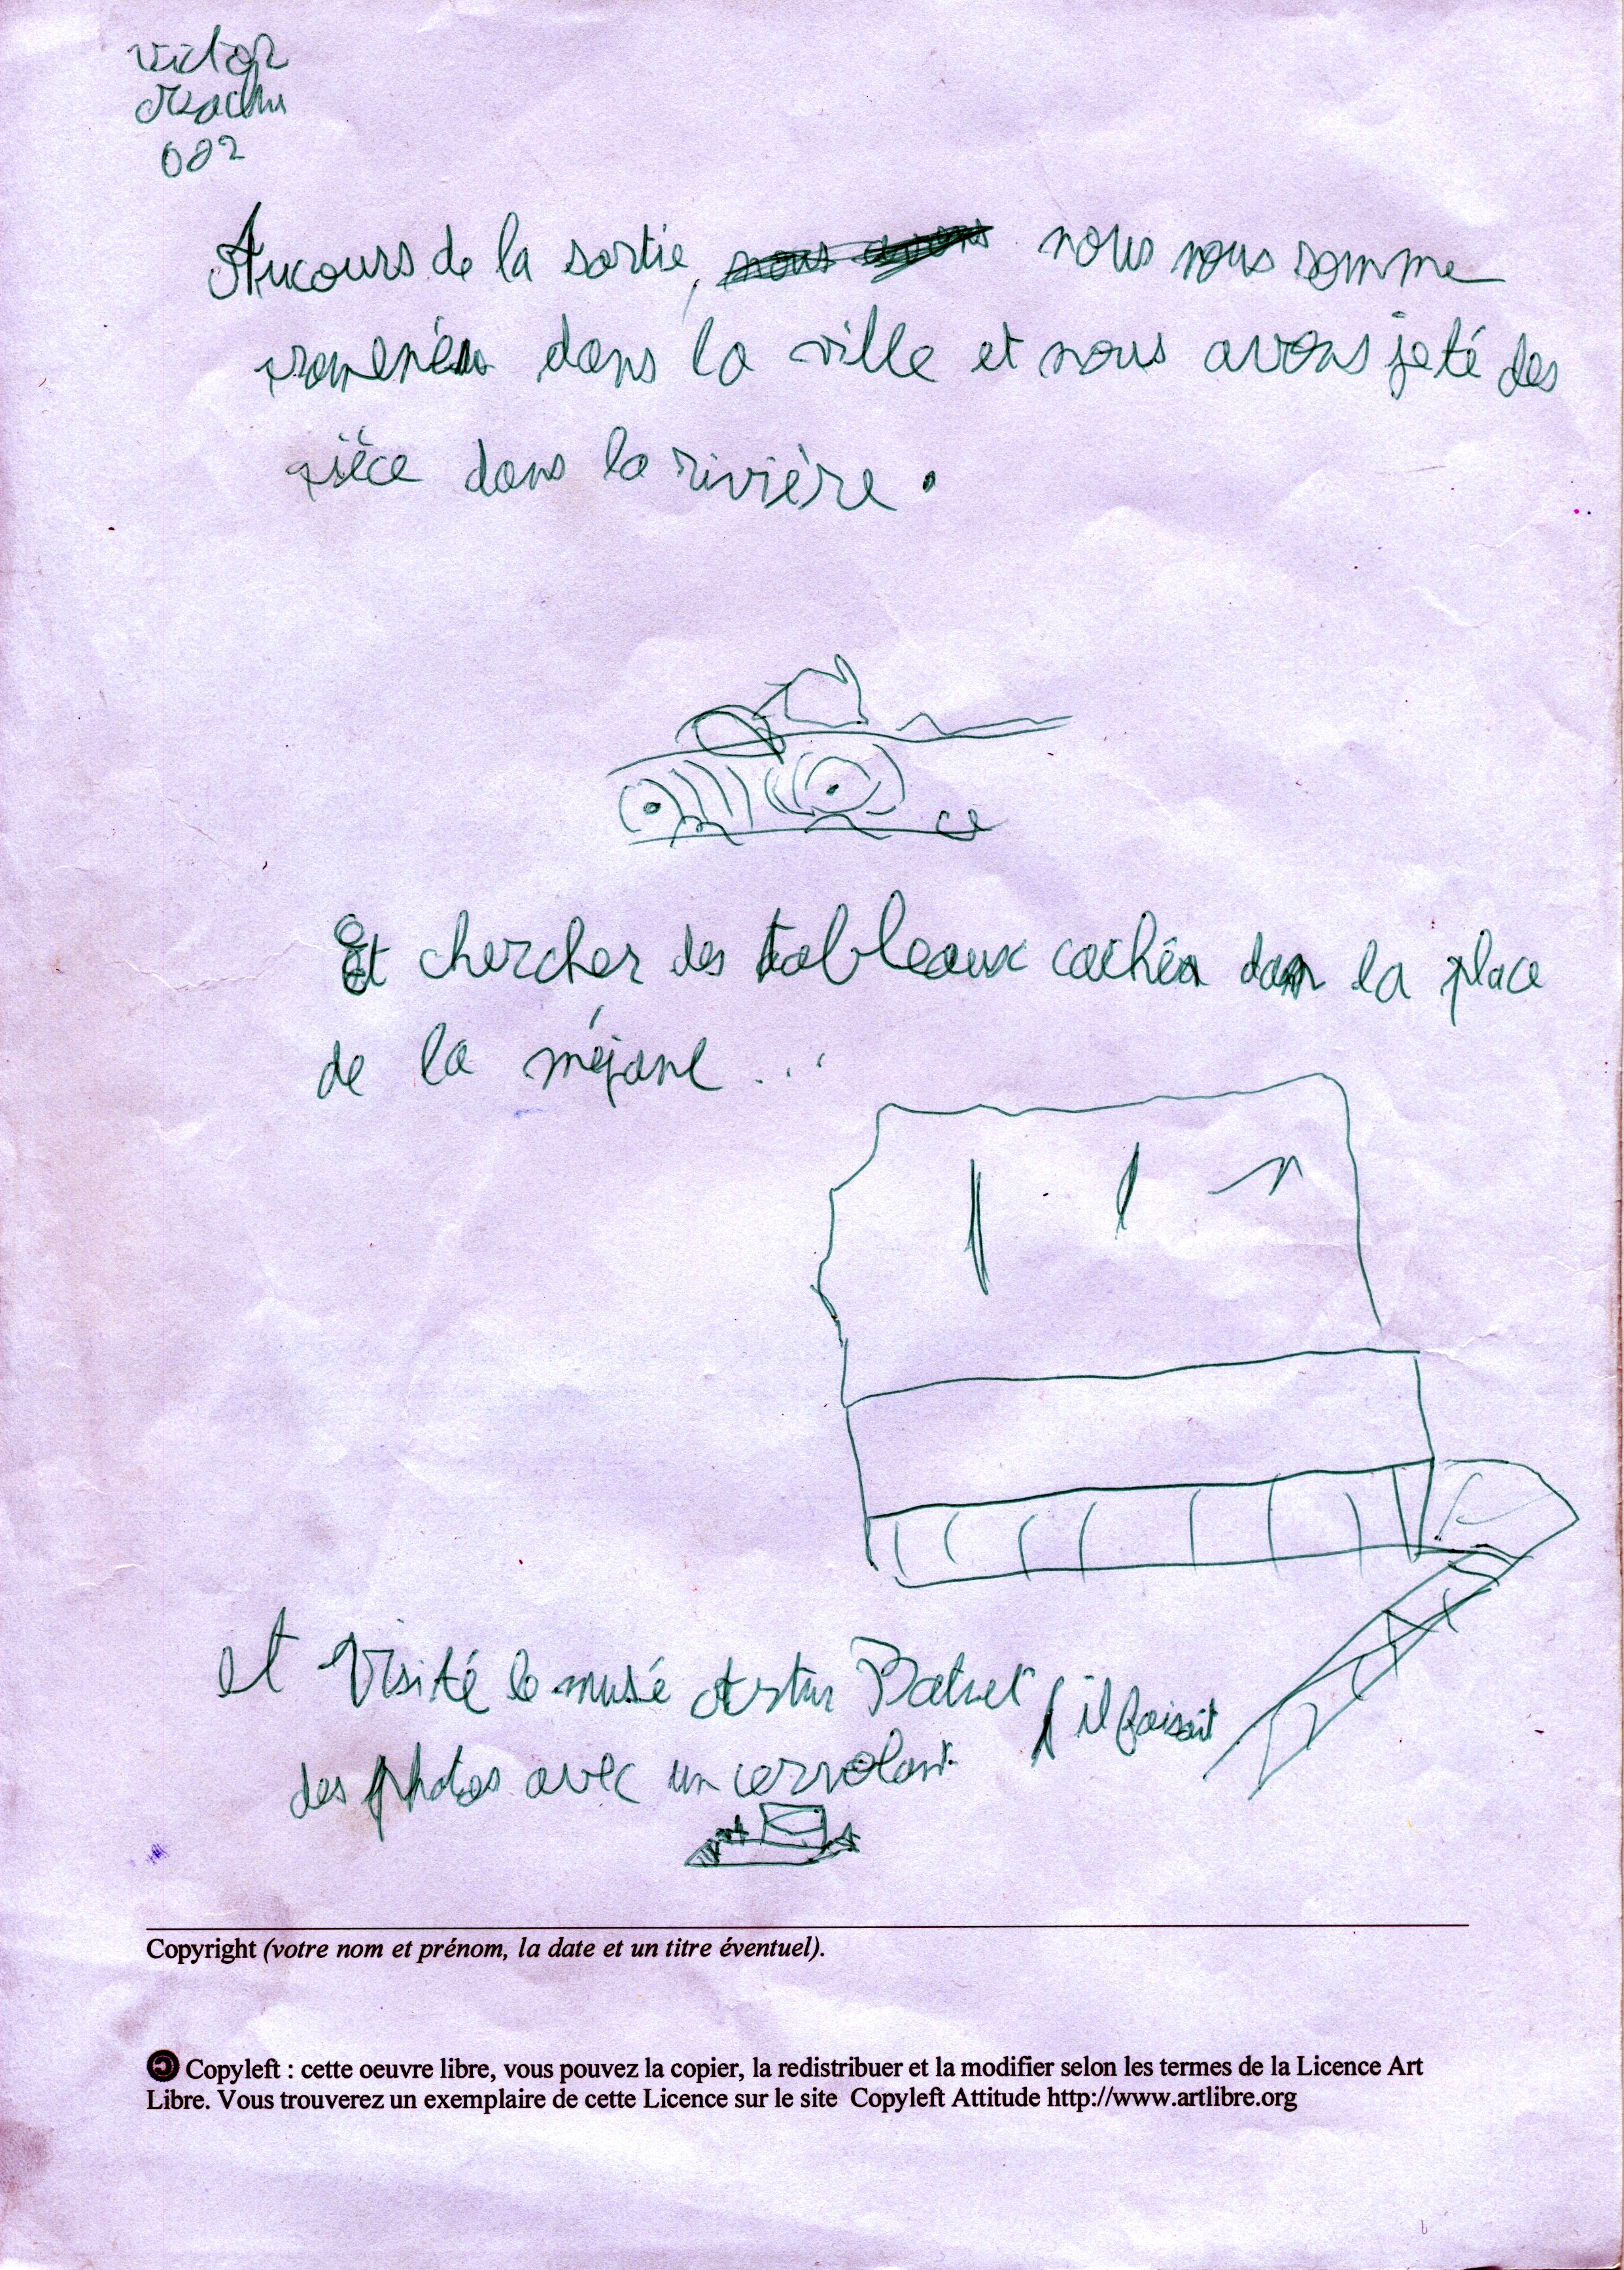 Victor
082
Aucours de la sortie, nous avons nous nous somme
promenés dans la ville et nous avons jeté des
pièce dans la rivière.
Et chercher des tableaux cachés dans la place
de la méjane...
et Visité le musé Batut il faisait
des photos avec un cervolant
Copyright (votre nom et prénom, la date et un titre éventuel).
Copyleft : cette oeuvre libre, vous pouvez la copier, la redistribuer et la modifier selon les termes de la Licence Art
Libre. Vous trouverez un exemplaire de cette Licence sur le site Copyleft Attitude http://www.artlibre.org